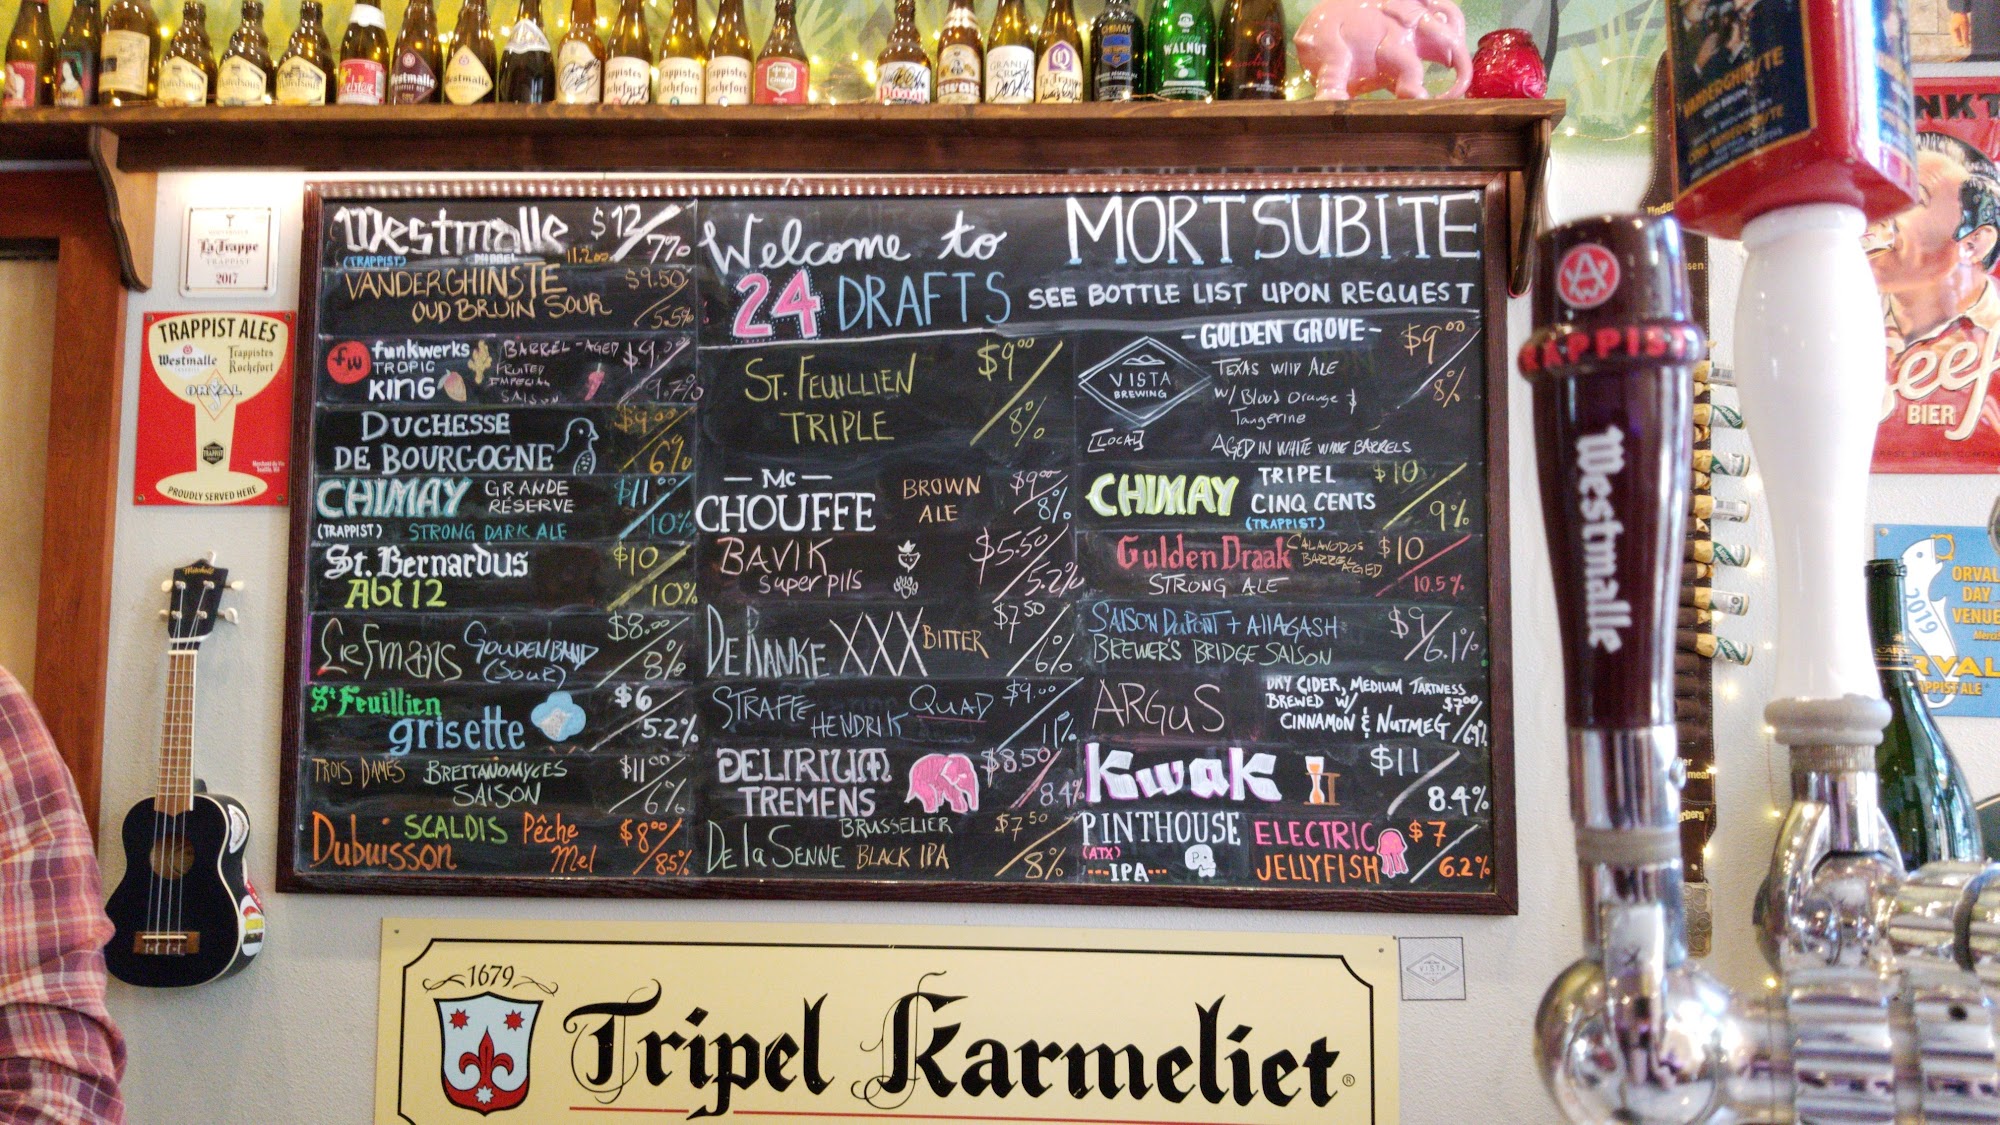 Westmalle $12/7%
(TRAPPIST) DUBBEL 11.2oz
VANDERGHINSTE $9.50
OUD BRUIN SOUR 5.5%
fw funkwerks BARREL-AGED $9.00
TROPIC FRUITED
KING IMPERIAL SAISON 9.7%
DUCHESSE $9.00
DE BOURGOGNE 6%
CHIMAY GRANDE RÉSERVE $11.00
(TRAPPIST) STRONG DARK ALE 10%
St. Bernardus $10
Abt 12 10%
Liefmans GOUDENBAND $8.00
(SOUR) 8%
St Feuillien $6
grisette 5.2%
TROIS DAMES BRETTANOMYCES $11.00
SAISON 6%
Dubuisson SCALDIS Pêche $8.00
Mel 8.5%
Welcome to MORT SUBITE
24 DRAFTS SEE BOTTLE LIST UPON REQUEST
ST. FEUILLIEN $9.00
TRIPLE 8%
Mc
CHOUFFE BROWN ALE $9.00 8%
BAVIK $5.50
super pils 5.2%
DE RANKE XXX BITTER $7.50 6%
STRAFFE HENDRIK QUAD $9.00 11%
DELIRIUM $8.50
TREMENS 8.4%
De la SENNE BRUSSELIER $7.50
BLACK IPA 8%
- GOLDEN GROVE - $9.00
VISTA BREWING TEXAS WILD ALE 8%
w/ Blood Orange &
Tangerine
[LOCAL] AGED IN WHITE WINE BARRELS
CHIMAY TRIPEL $10
CINQ CENTS 9%
(TRAPPIST)
Gulden Draak CALAVODOS BARREL AGED $10
STRONG ALE 10.5%
SAISON DUPONT + AllAGASH $9
BREWERS BRIDGE SAISON 6.1%
ARGUS DRY CIDER, MEDIUM TARTNESS
BREWED W/ $7.00
CINNAMON & NUTMEG 6.9%
Kwak $11
8.4%
PINTHOUSE ELECTRIC $7
(ATX)
---IPA--- JELLYFISH 6.2%
La Trappe
TRAPPIST
2017
TRAPPIST ALES
Westmalle Trappistes Rochefort
ORVAL
PROUDLY SERVED HERE
1679
Tripel Karmeliet®
VISTA
TRAPPIST
Westmalle
VANDERGHINSTE
BIER
ORVAL
DAY
VENUE
2019
Westmalle
Trappistes
Rochefort
kwak
GRAND CRU
La Trappe
CHIMAY
WALNUT